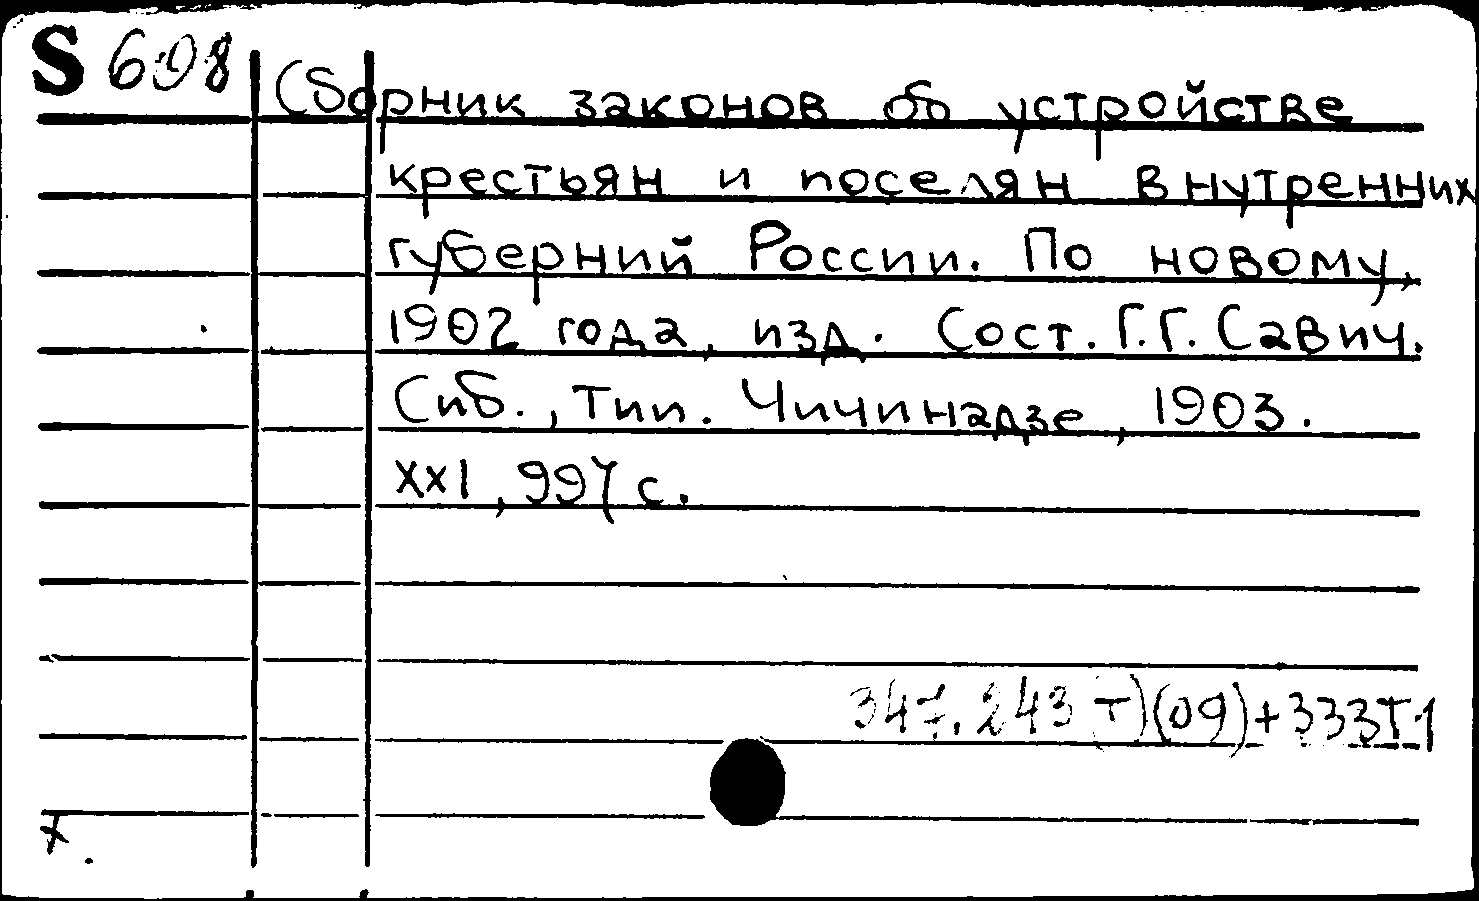 S 698
Сборник законов об устройстве
крестьян и поселян внутренних
губерний России. По новому,
1902 года, изд. Сост. Г.Г. Савич.
Спб., тип. Чичинадзе, 1903.
XXI, 997 с.
347.243 (Т)(09)+333Т1